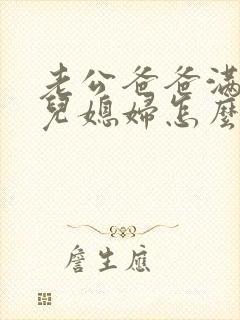 老公爸爸滿
兒媳婦怎麼
詹生應